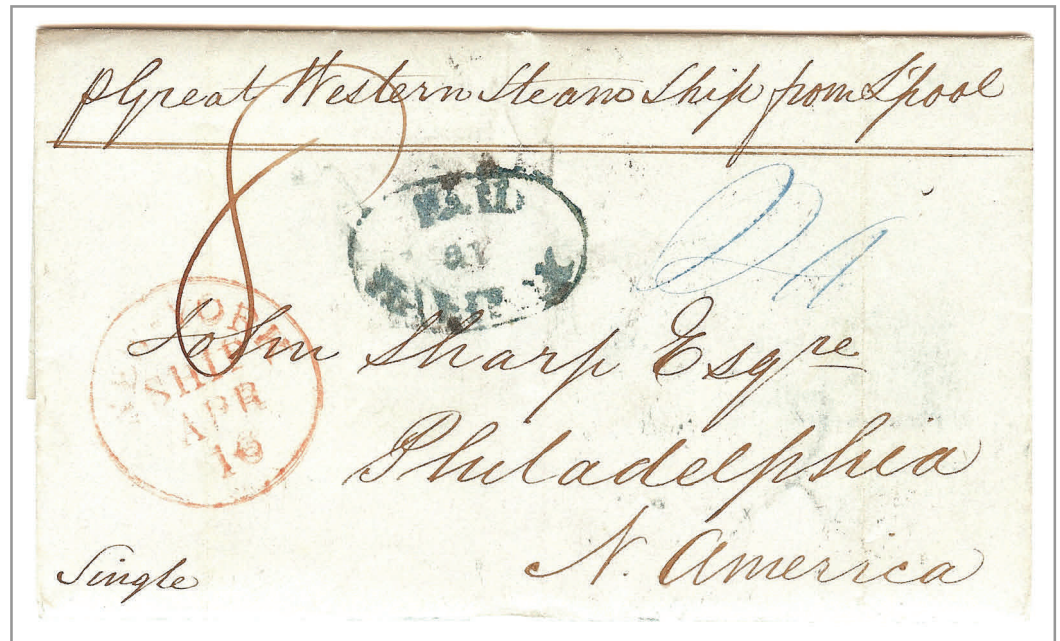 p Great Western Steam Ship from L'pool
8
PAID
24
NEW-YORK
SHIP
APR
16
John Sharp Esqre
Philadelphia
N. America
Single